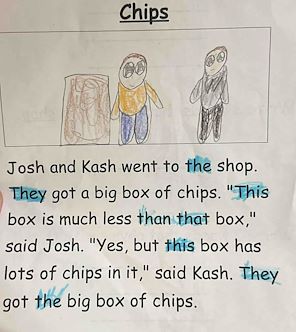 Chips
Josh and Kash went to the shop.
They got a big box of chips. "This
box is much less than that box,"
said Josh. "Yes, but this box has
lots of chips in it," said Kash. They
got the big box of chips.